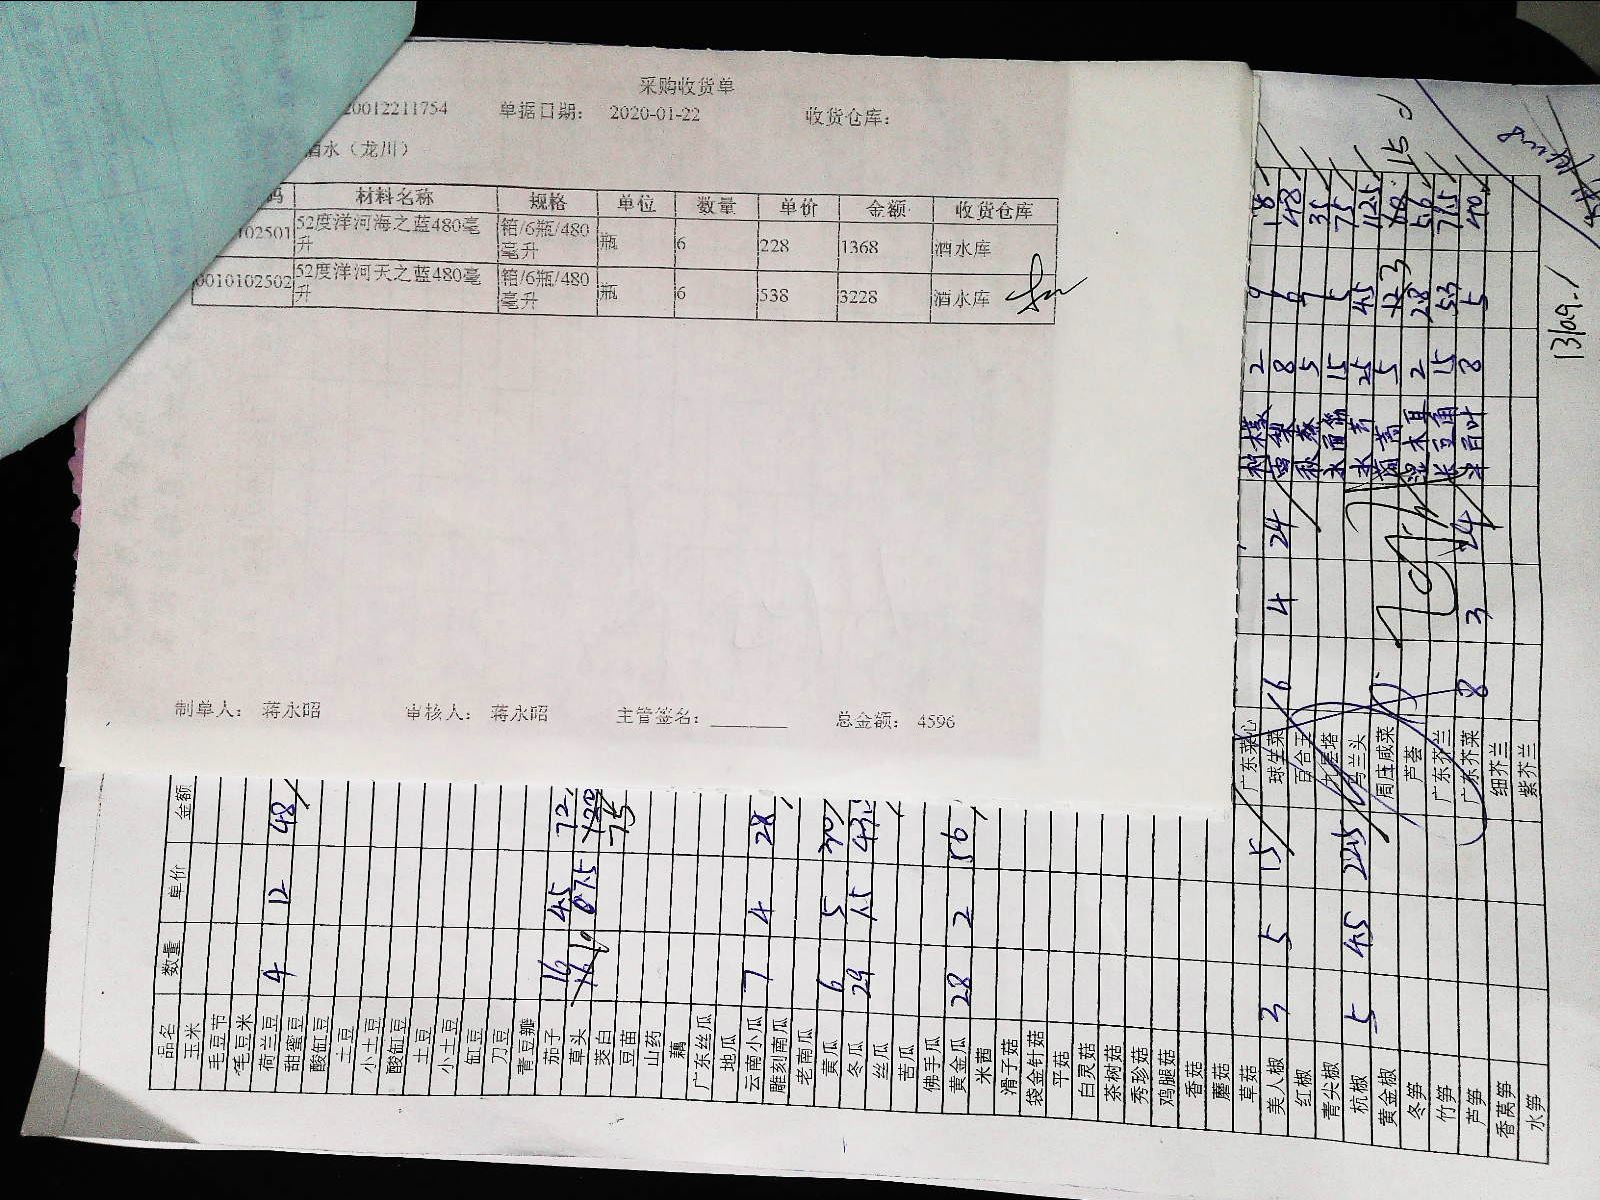 采购收货单
20012211754 单据日期： 2020-01-22 收货仓库：
酒水（龙川）
码 材料名称 规格 单位 数量 单价 金额 收货仓库
102501 52度洋河海之蓝480毫升 箱/6瓶/480毫升 瓶 6 228 1368 酒水库
0010102502 52度洋河天之蓝480毫升 箱/6瓶/480毫升 瓶 6 538 3228 酒水库
制单人： 蒋永昭 审核人： 蒋永昭 主管签名： 总金额： 4596
品名 数量 单价 金额
玉米
毛豆节
毛豆米
荷兰豆 4 12 48
甜蜜豆
酸缸豆
土豆
小土豆
酸缸豆
土豆
小土豆
缸豆
刀豆
青豆瓣
茄子 16 4.5 72
草头 10 7.5 75
茭白
豆苗
山药
藕
广东丝瓜
地瓜
云南小瓜 7 4 28
雕刻南瓜
老南瓜
黄瓜 6 5 30
冬瓜 29 1.5
丝瓜
苦瓜
佛手瓜
黄金瓜 28 2 56
米茜
滑子菇
袋金针菇
平菇
白灵菇
茶树菇
秀珍菇
鸡腿菇
香菇
蘑菇
草菇
美人椒 3 5 15
红椒
青尖椒
杭椒 5 4.5 22.5
黄金椒
冬笋
竹笋
芦笋
香莴笋
水笋
广东菜心
球生菜 6 4 24
马兰头
周庄咸菜
芦荟
广东芥兰
广东芥菜 8 3 24
细芥兰
紫芥兰
柠檬 2 9 18
雪梨 8 6 48
秋葵 5 7 35
水面筋 15 5 75
水芹 25 4.5 112.5
湿木耳 2 28 56
长豆角 15 5.3 79.5
牛百叶 8 5 40